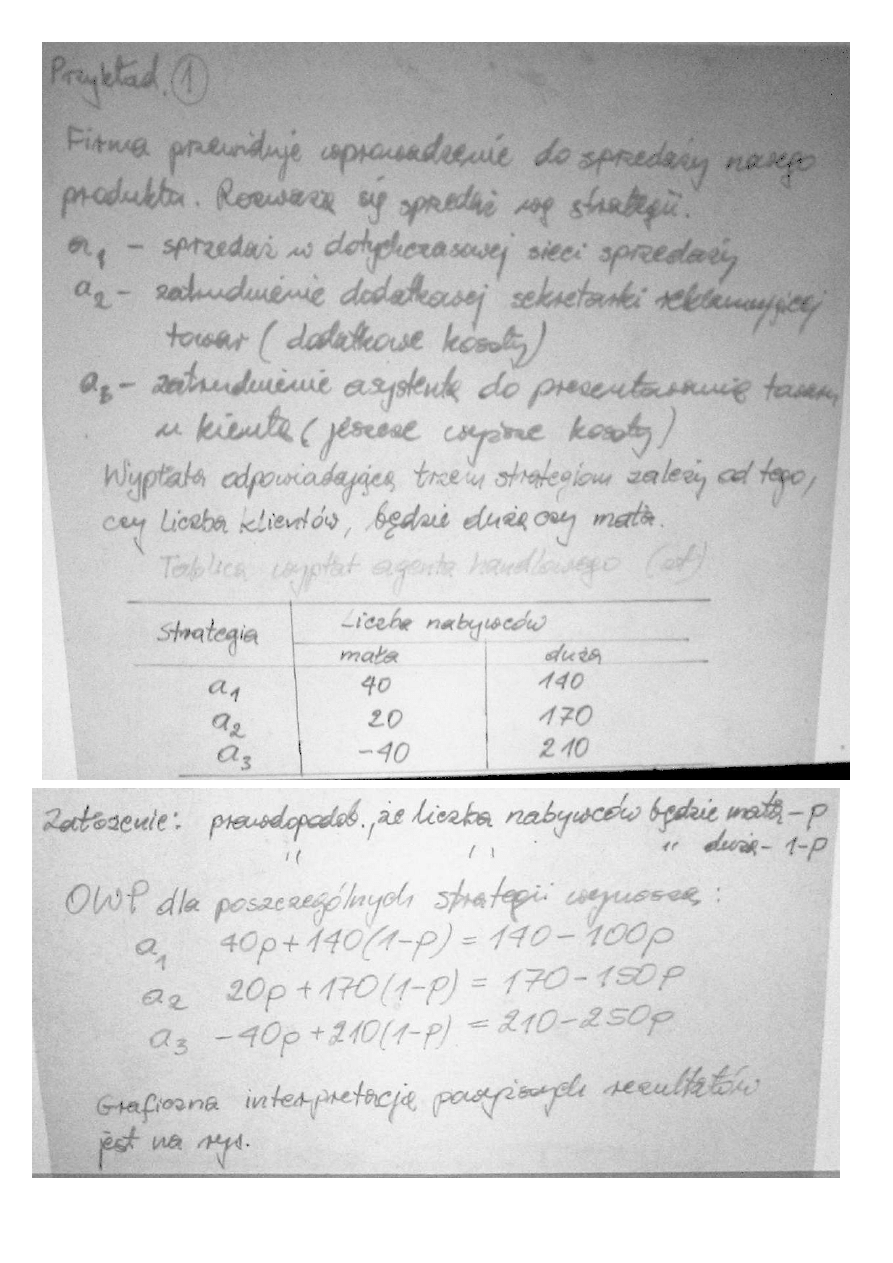 Przykład. 1
Firma przewiduje wprowadzenie do sprzedaży nowego
produktu. Rozważa się sprzedaż wg strategii.
a1 – sprzedaż w dotychczasowej sieci sprzedaży
a2 – zatrudnienie dodatkowej sekretarki reklamującej
towar ( dodatkowe koszty)
a3 – zatrudnienie asystenta do prezentowania towaru
u klienta ( jeszcze wyższe koszty)
Wypłata odpowiadająca trzem strategiom zależy od tego,
czy liczba klientów, będzie duża czy mała.
Tablica wypłat agenta handlowego (zł)
Strategia Liczba nabywców
mała duża
a1 40 140
a2 20 170
a3 –40 210
Założenie: prawdopodob., że liczba nabywców będzie mała – p
" " " duża – 1-p
OWP dla poszczególnych strategii wynoszą:
a1 40p + 140(1-p) = 140 – 100p
a2 20p + 170(1-p) = 170 – 150p
a3 –40p + 210(1-p) = 210 – 250p
Graficzna interpretacja powyższych rezultatów
jest na rys.